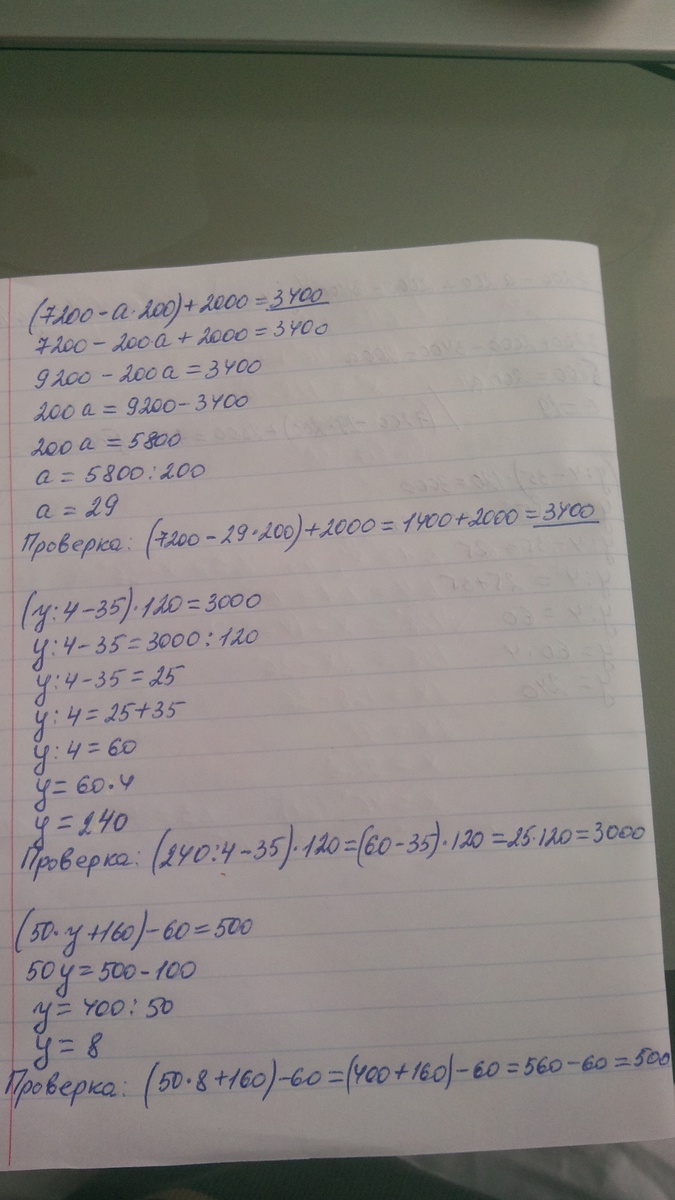 (7200 - а·200) + 2000 = 3400
7200 - 200а + 2000 = 3400
9200 - 200а = 3400
200а = 9200 - 3400
200а = 5800
а = 5800 : 200
а = 29
Проверка: (7200 - 29·200) + 2000 = 1400 + 2000 = 3400
(у : 4 - 35)·120 = 3000
у : 4 - 35 = 3000 : 120
у : 4 - 35 = 25
у : 4 = 25 + 35
у : 4 = 60
у = 60·4
у = 240
Проверка: (240 : 4 - 35)·120 = (60 - 35)·120 = 25·120 = 3000
(50·у + 160) - 60 = 500
50у = 500 - 100
у = 400 : 50
у = 8
Проверка: (50·8 + 160) - 60 = (400 + 160) - 60 = 560 - 60 = 500